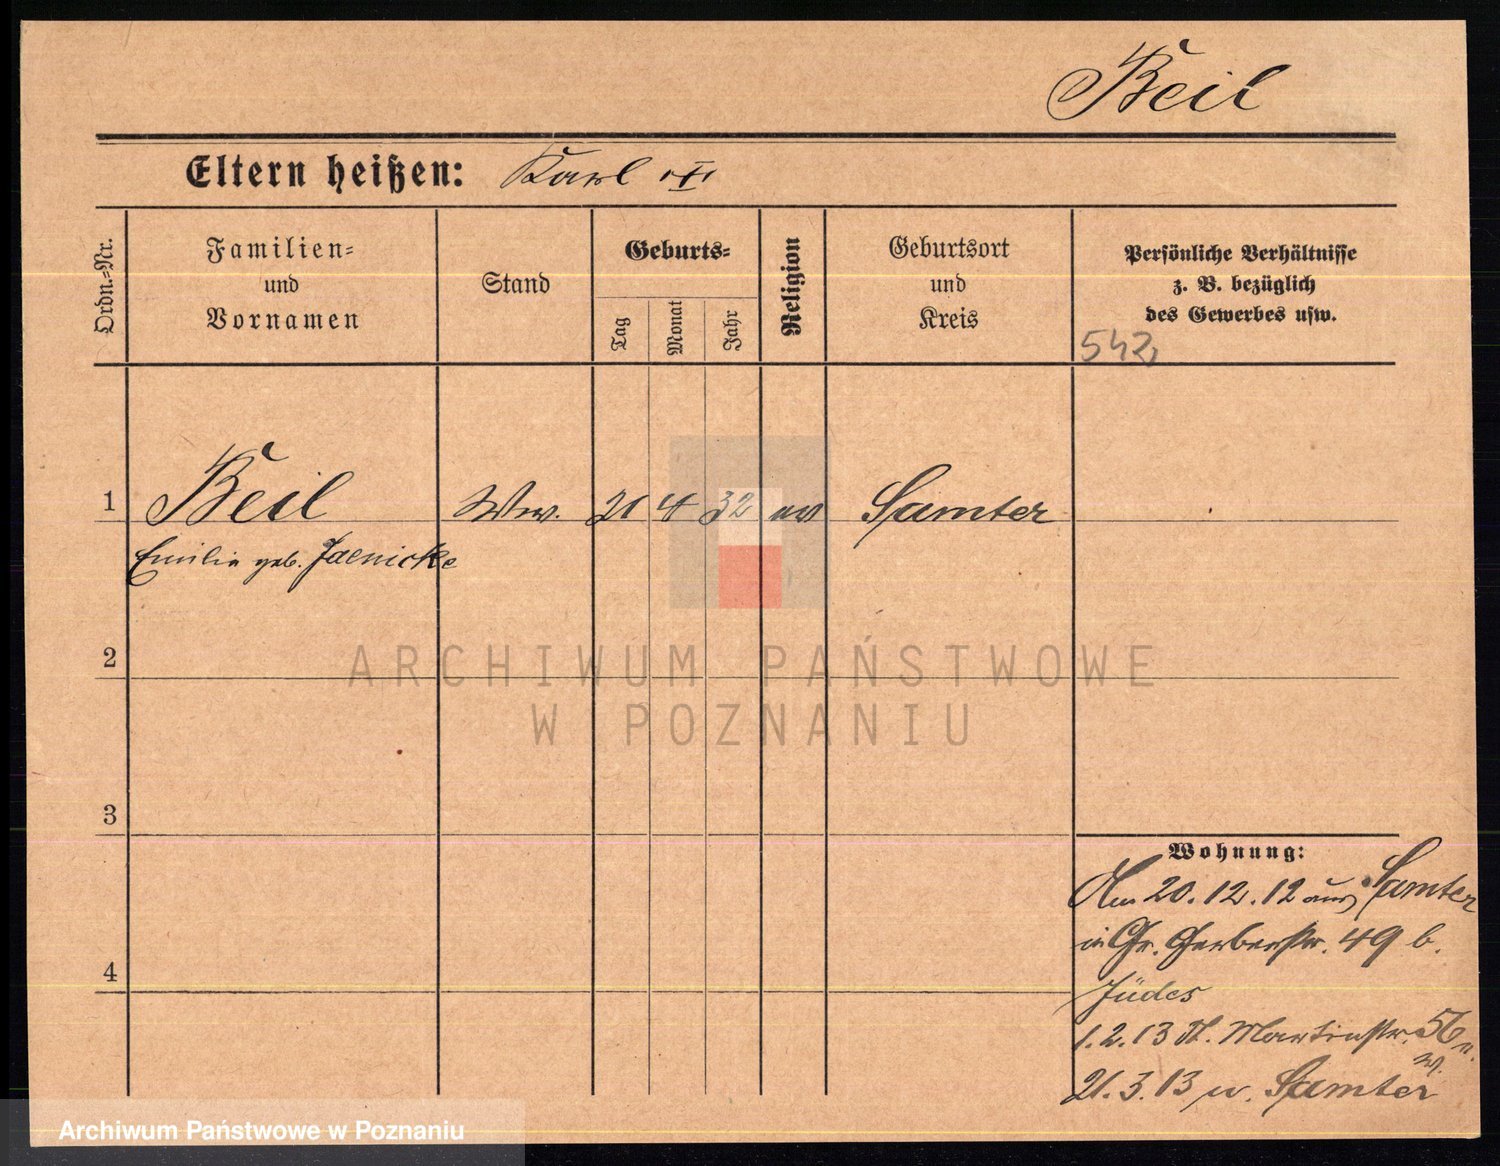 Beil
Eltern heißen: Karl
Ordn.=Nr.
Familien=
und
Vornamen
Stand
Geburts=
Tag
Monat
Jahr
Religion
Geburtsort
und
Kreis
Persönliche Verhältnisse
z. B. bezüglich
des Gewerbes usw.
542
1 Beil Ww. 21 4 32 ev Samter
Emilie geb. Jaenicke
2
ARCHIWUM PAŃSTWOWE
W POZNANIU
3
Wohnung:
Am 20.12.12 aus Samter
in Gr. Gerberstr. 49 b.
Jüdes
4
1.2.13 St. Martinstr. 56
21.3.13 n. Samter
Archiwum Państwowe w Poznaniu